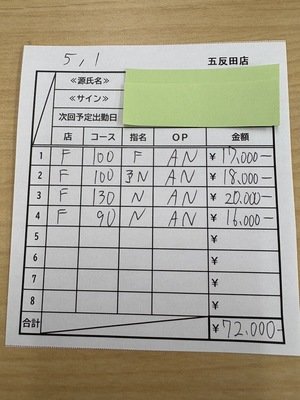 5,1 五反田店
≪源氏名≫
≪サイン≫
次回予定出勤日
店 コース 指名 OP 金額
1 F 100 F AN ¥17,000-
2 F 100 ヲN AN ¥18,000-
3 F 130 N AN ¥20,000-
4 F 90 N AN ¥16,000-
5 ¥
6 ¥
7 ¥
8 ¥
合計 ¥72,000-